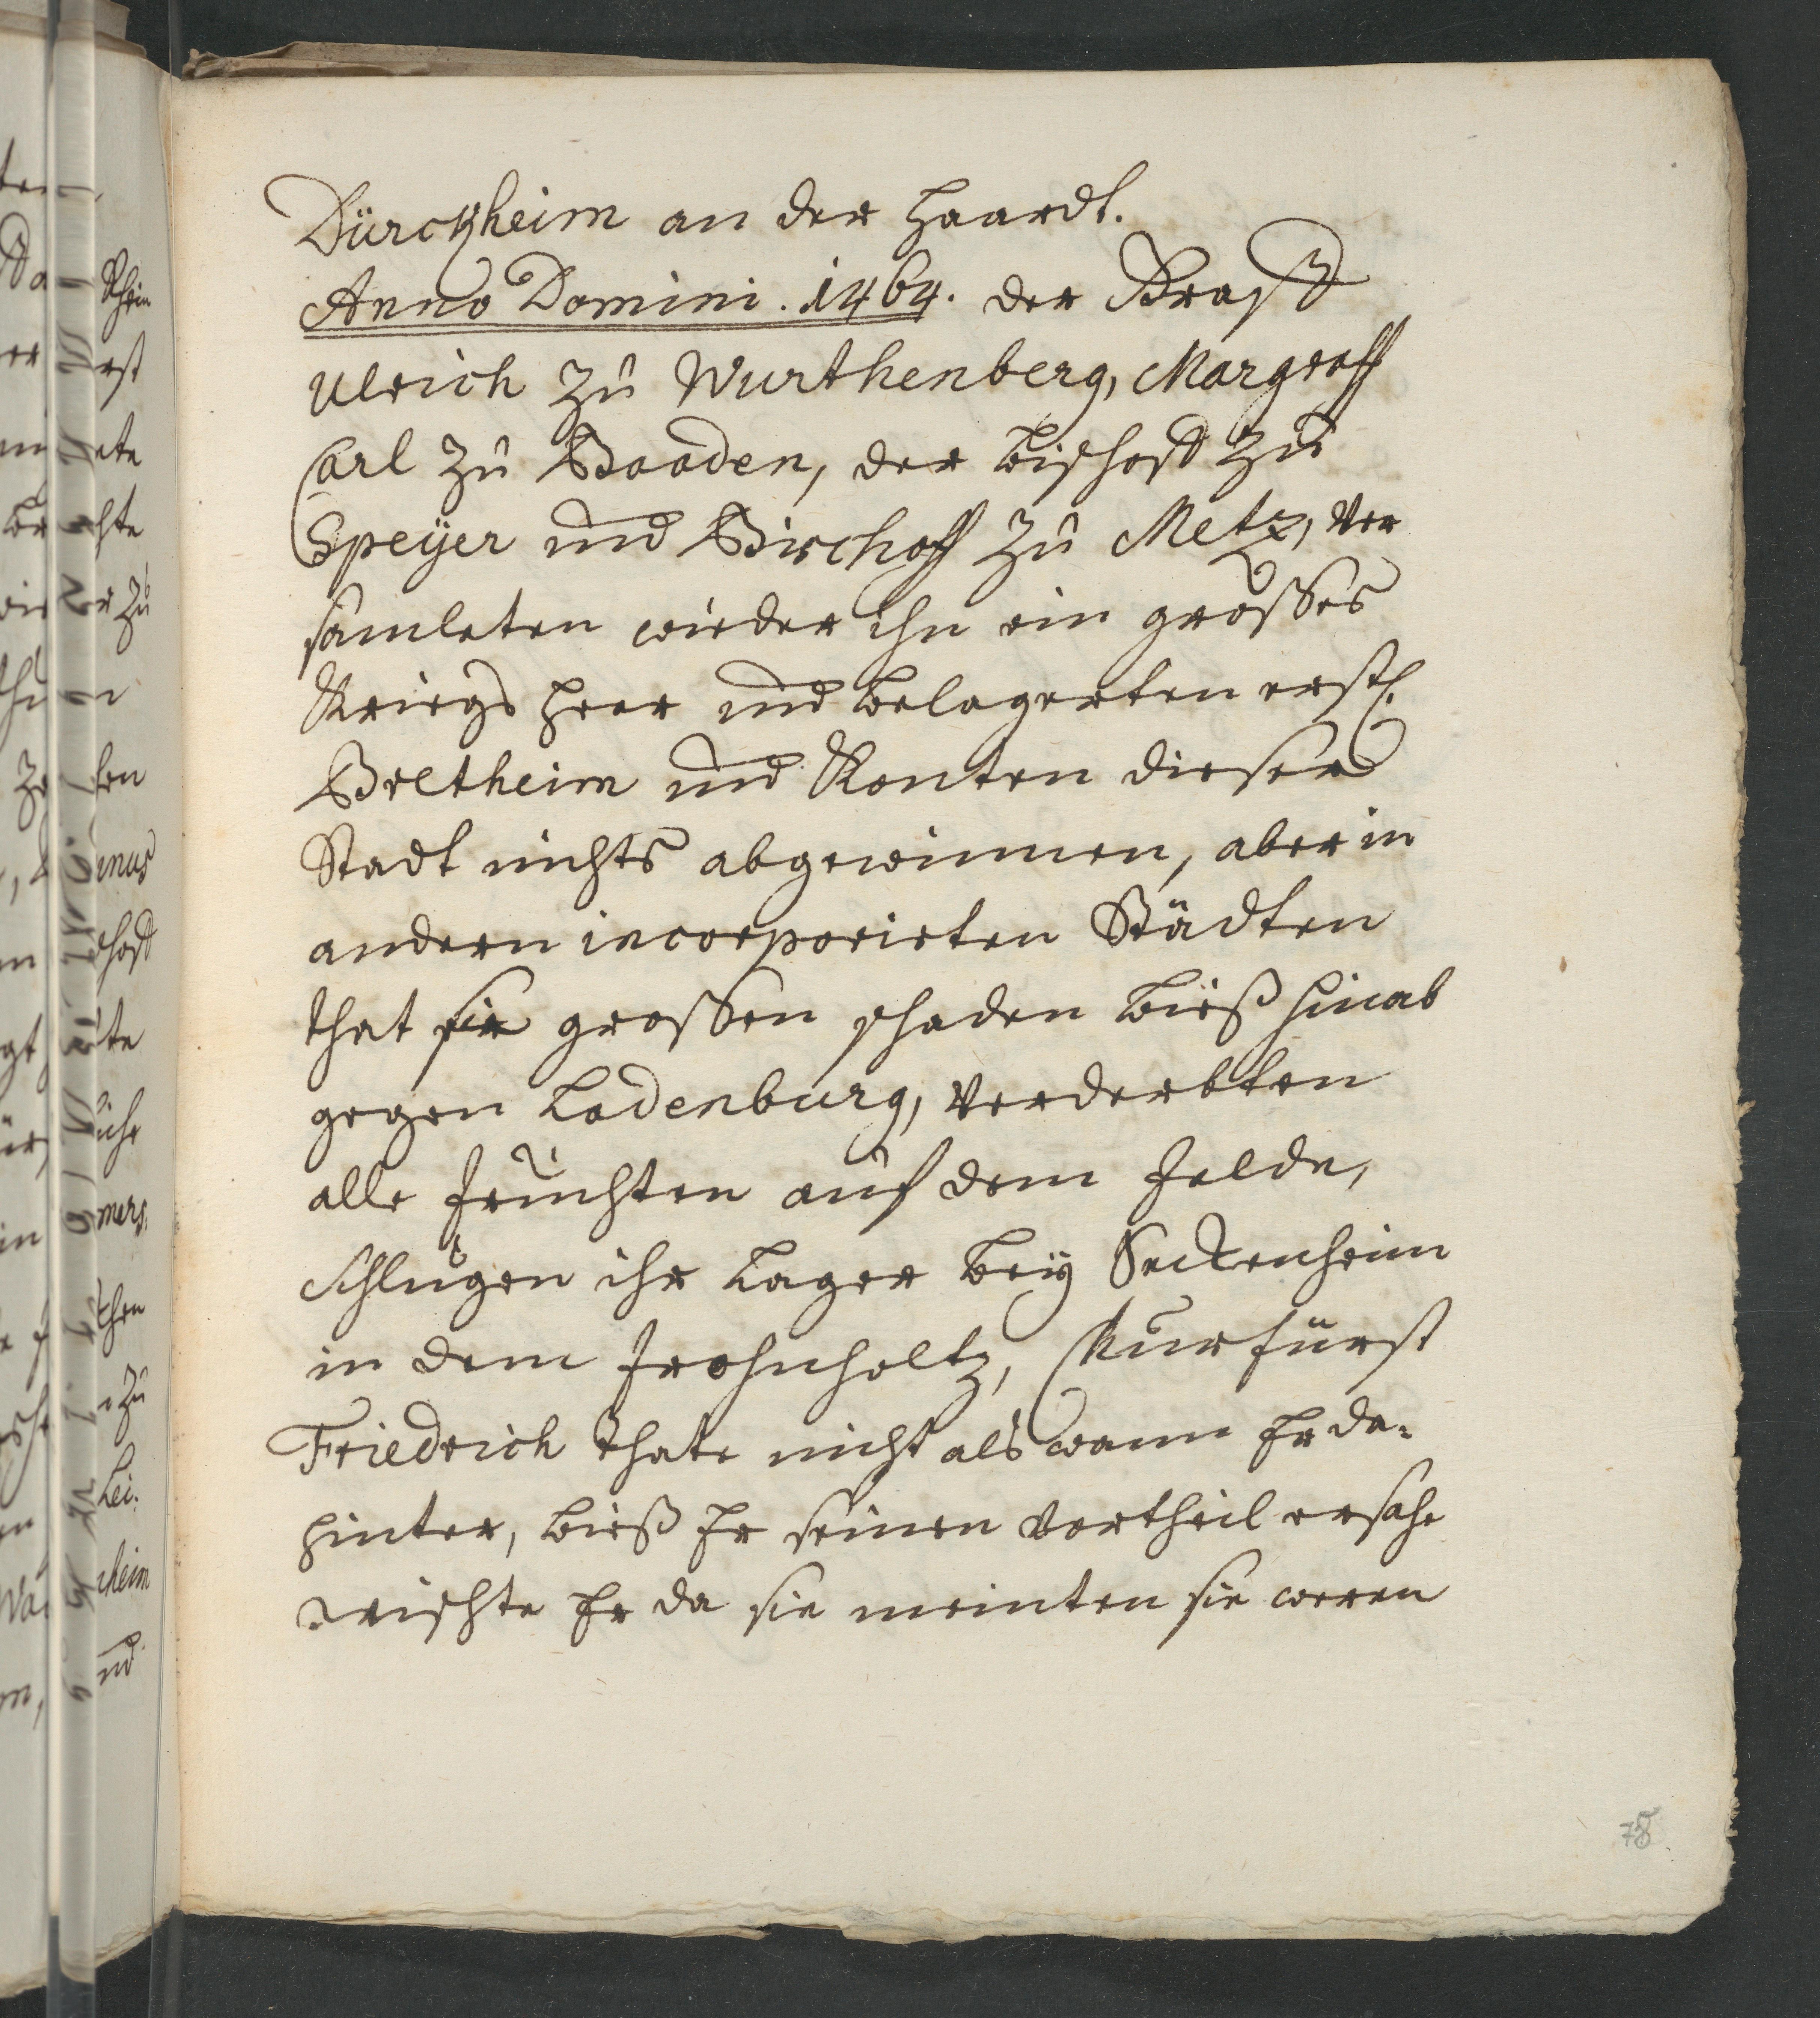 Dürckheim an der Haardt.
Anno Domini. 1464. der Graff
Ulrich zu Wurthenberg, Margraff
Carl zu Baaden, der bischoff zu
Speÿer und Bischoff zu Metz, ver
samleten wieder ihn ein grosses
Kriegs heer und belagerten erstl.
Bretheim und Konten dieser
Stadt nichts abgewinnen, aber in
andern incorporirten Städten
that sie grossen schaden bieß hinab
gegen Ladenburg, verderbten
alle früchten auf dem felde,
schlugen ihr Lager beÿ Seckenheim
in dem frohnholtz, Churfürst
Friedrich thate nicht als wann Er da-
hinter, bieß Er seinen vortheil ersahe
wischte Er da sie meinten sie weren
78